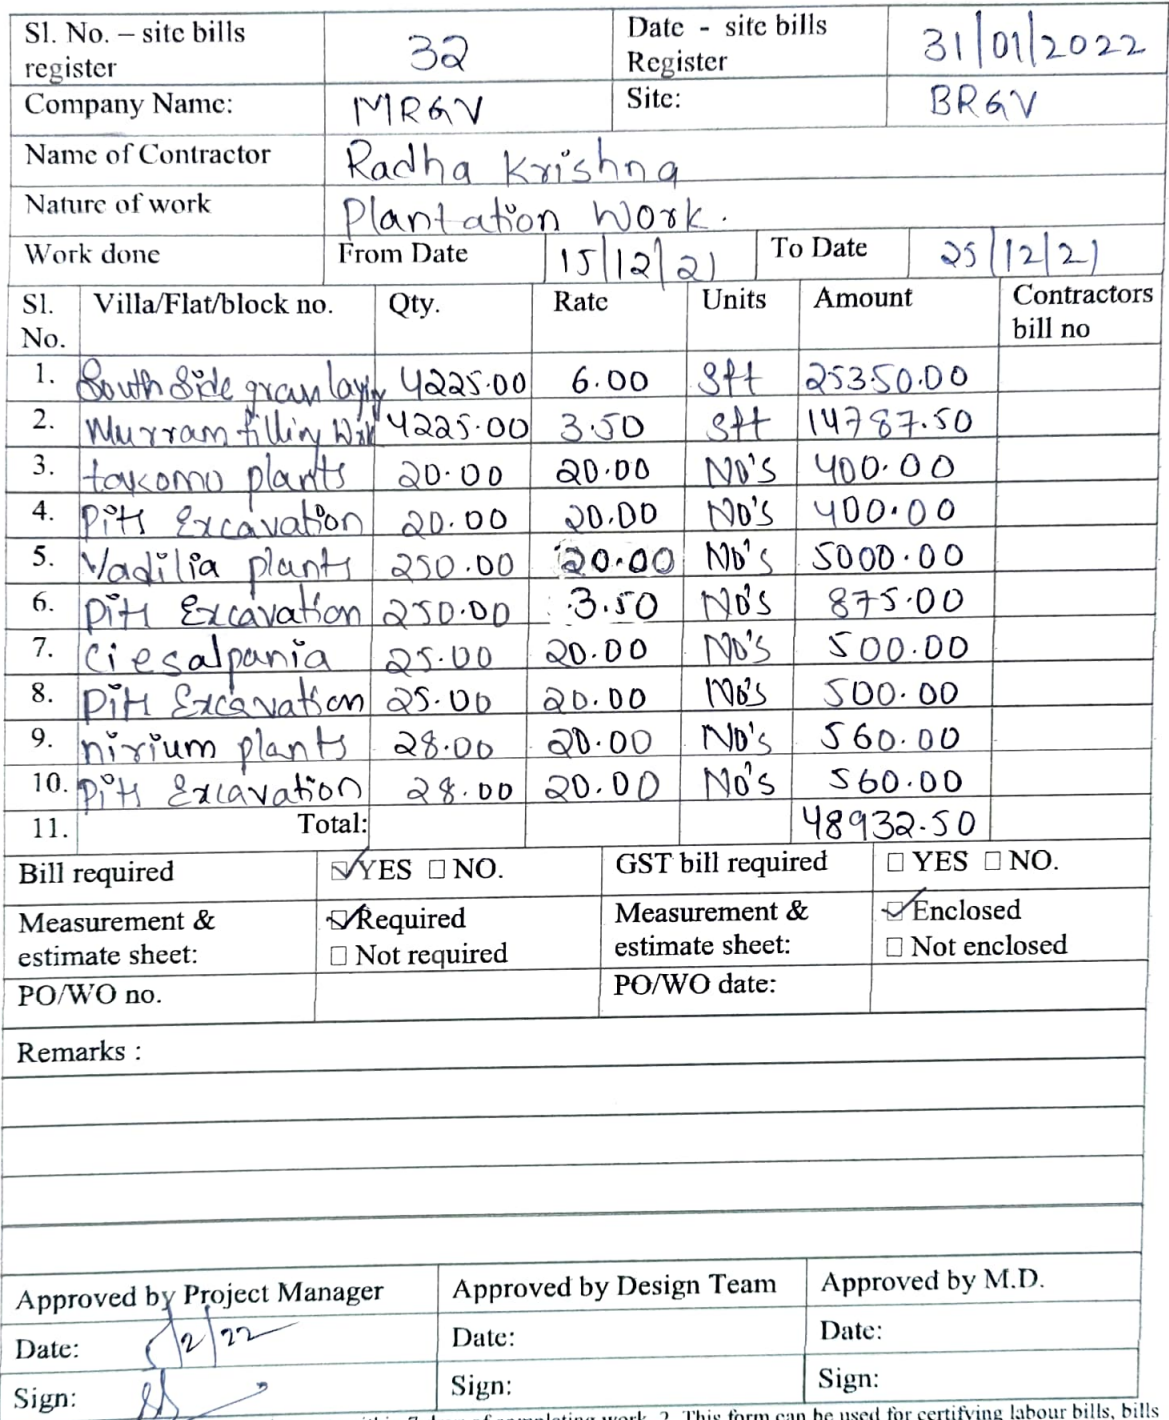 Sl. No. – site bills register 32 Date - site bills Register 31/01/2022
Company Name: MRGV Site: BRGV
Name of Contractor Radha Krishna
Nature of work Plantation Work.
Work done From Date 15/12/21 To Date 25/12/21
Sl. No. Villa/Flat/block no. Qty. Rate Units Amount Contractors bill no
1. South Side gran laying 4225.00 6.00 Sft 25350.00
2. Murram filling Work 4225.00 3.50 Sft 14787.50
3. takomo plants 20.00 20.00 No's 400.00
4. Pitt Excavation 20.00 20.00 No's 400.00
5. Vadilia plants 250.00 20.00 No's 5000.00
6. Pitt Excavation 250.00 3.50 No's 875.00
7. Ciesalpania 25.00 20.00 No's 500.00
8. Pitt Excavation 25.00 20.00 No's 500.00
9. nirium plants 28.00 20.00 No's 560.00
10. Pitt Excavation 28.00 20.00 No's 560.00
11. Total: 48932.50
Bill required ☑ YES □ NO. GST bill required □ YES □ NO.
Measurement & estimate sheet: ☑ Required □ Not required Measurement & estimate sheet: ☑ Enclosed □ Not enclosed
PO/WO no. PO/WO date:
Remarks :
Approved by Project Manager Approved by Design Team Approved by M.D.
Date: 5/2/22 Date: Date:
Sign: Sign: Sign:
of completing work. 2. This form can be used for certifying labour bills, bills